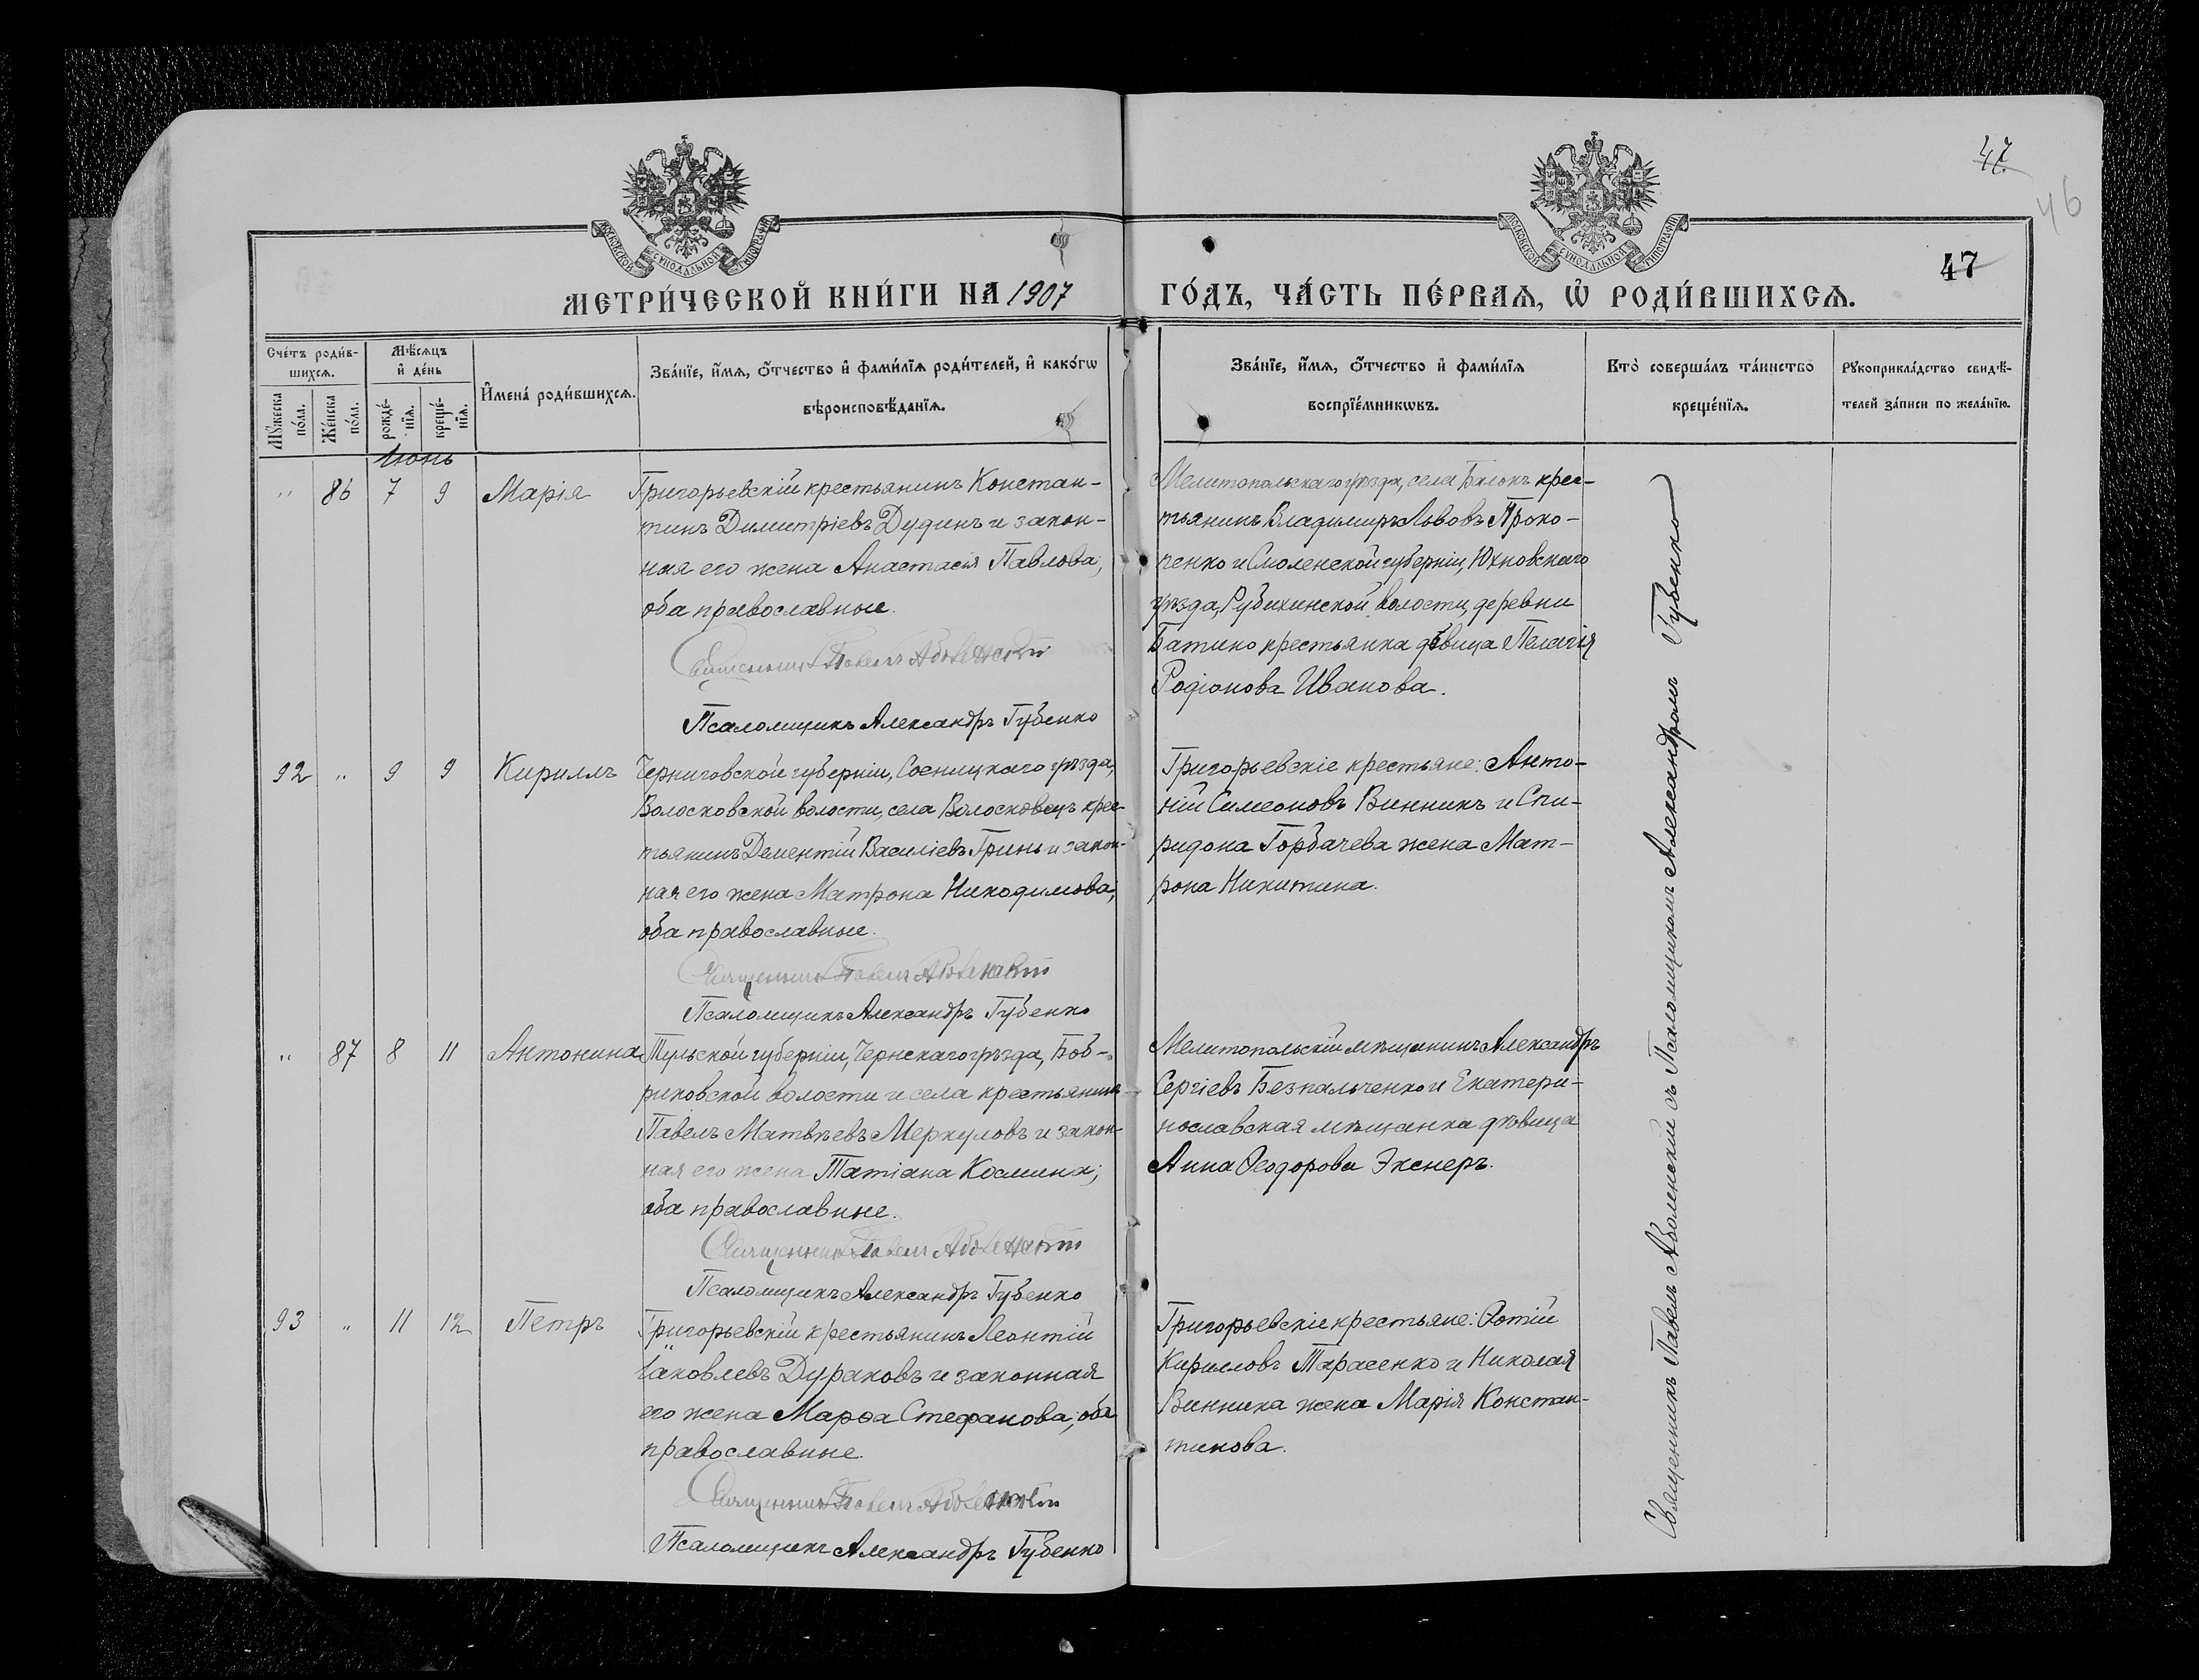 47
46
МОСКОВСКОЙ СѴНОДАЛЬНОЙ ТИПОГРАФІИ
МОСКОВСКОЙ СѴНОДАЛЬНОЙ ТИПОГРАФІИ
47
МЕТРИ́ЧЕСКОЙ КНИ́ГИ НА 1907
ГО́ДЪ, ЧА́СТЬ ПЕ́РВАѦ, Ѡ҆ РОДИ́ВШИХСѦ.
Сче́тъ роди́в-
шихсѧ.
Мꙋ́жеска по́ла.
Же́нска по́ла.
Мѣ́сѧцъ
и҆ де́нь
рожде́-
нїѧ.
креще́-
нїѧ.
И҆мена̀ роди́вшихсѧ.
Зва́нїе, и҆́мѧ, ѻ҆́тчество и҆ фами́лїѧ роди́телей, и҆ како́гѡ
вѣроисповѣ́данїѧ.
Зва́нїе, и҆́мѧ, ѻ҆́тчество и҆ фами́лїѧ
воспрїе́мникѡвъ.
Кто̀ соверша́лъ та́инство
креще́нїѧ.
Рꙋкоприкла́дство свидѣ́-
телей за́писи по жела́нїю.
Іюнь
" 86 7 9 Марія
Григорьевскій крестьянинъ Констан-
тинъ Димитріевъ Дудинъ и закон-
ная его жена Анастасія Павлова;
оба православные.
Священникъ Павелъ Аболенскій
Псаломщикъ Александръ Губенко
Мелитопольскаго уѣзда, села Бѣлокъ крес-
тьянинъ Владимиръ Львовъ Проко-
пенко и Смоленской губерніи, Юхновскаго
уѣзда, Рубихинской волости, деревни
Батино крестьянка дѣвица Пелагія
Родіонова Иванова.
92 " 9 9 Кириллъ
Черниговской губерніи, Сосницкаго уѣзда,
Волосковской волости, села Волосковецъ крес-
тьянинъ Дементій Василіевъ Гринь и закон-
ная его жена Матрона Никодимова;
оба православные.
Священникъ Павелъ Аболенскій
Псаломщикъ Александръ Губенко
Григорьевскіе крестьяне: Анто-
ній Симеоновъ Винникъ и Спи-
ридона Горбачева жена Мат-
рона Никитина.
" 87 8 11 Антонина
Тульской губерніи, Чернскаго уѣзда, Боб-
риковской волости и села крестьянинъ
Павелъ Матвѣевъ Меркуловъ и закон-
ная его жена Татіана Космина;
оба православные.
Священникъ Павелъ Аболенскій
Псаломщикъ Александръ Губенко
Мелитопольскій мѣщанинъ Александръ
Сергіевъ Безпальченко и Екатери-
нославская мѣщанка дѣвица
Анна Ѳеодорова Экснеръ.
93 " 11 12 Петръ
Григорьевскій крестьянинъ Леонтій
Іаковлевъ Дураковъ и законная
его жена Марѳа Стефанова; оба
православные.
Священникъ Павелъ Аболенскій
Псаломщикъ Александръ Губенко
Григорьевскіе крестьяне: Фотій
Кирилловъ Тарасенко и Николая
Винника жена Марія Констан-
тинова.
Священникъ Павелъ Аболенскій съ Псаломщикомъ Александромъ Губенко